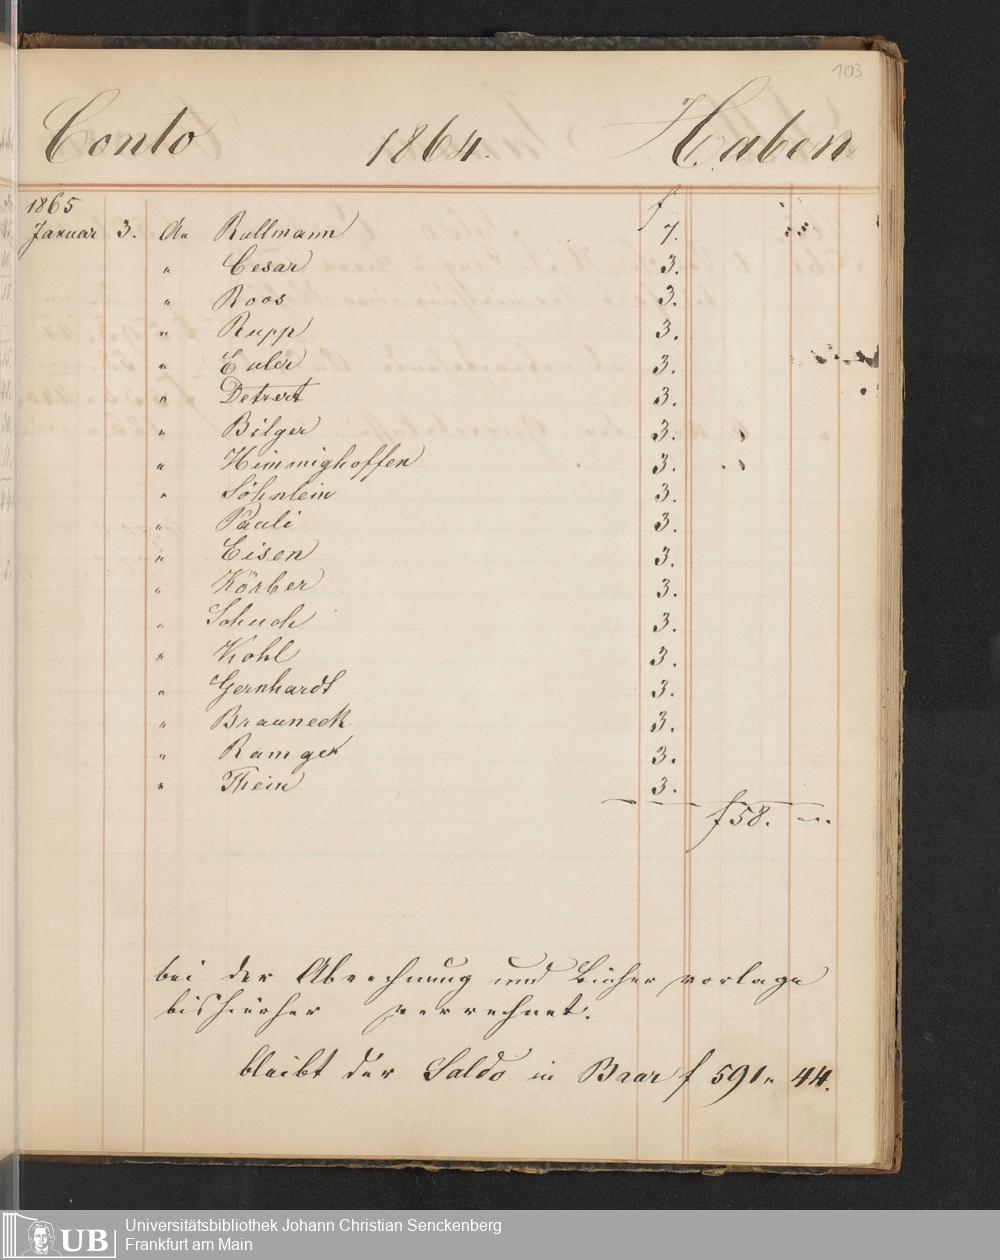 103
Conto 1864. Haben
1865 f
Januar 3. An Rullmann 7.
" Cesar 3.
" Roos 3.
" Rupp 3.
" Euler 3.
" Detert 3.
" Bilger 3.
" Himmighoffen 3.
" Söhnlein 3.
" Pauli 3.
" Eisen 3.
" Körber 3.
" Schuch 3.
" Kohl 3.
" Gernhardt 3.
" Brauneck 3.
" Ramge 3.
" Thein 3.
f 58. –.
bei der Abrechnung und Bücher vorlage
bis hierher verrechnet.
bleibt der Saldo in Baar f 591 " 44.
UB
Universitätsbibliothek Johann Christian Senckenberg
Frankfurt am Main